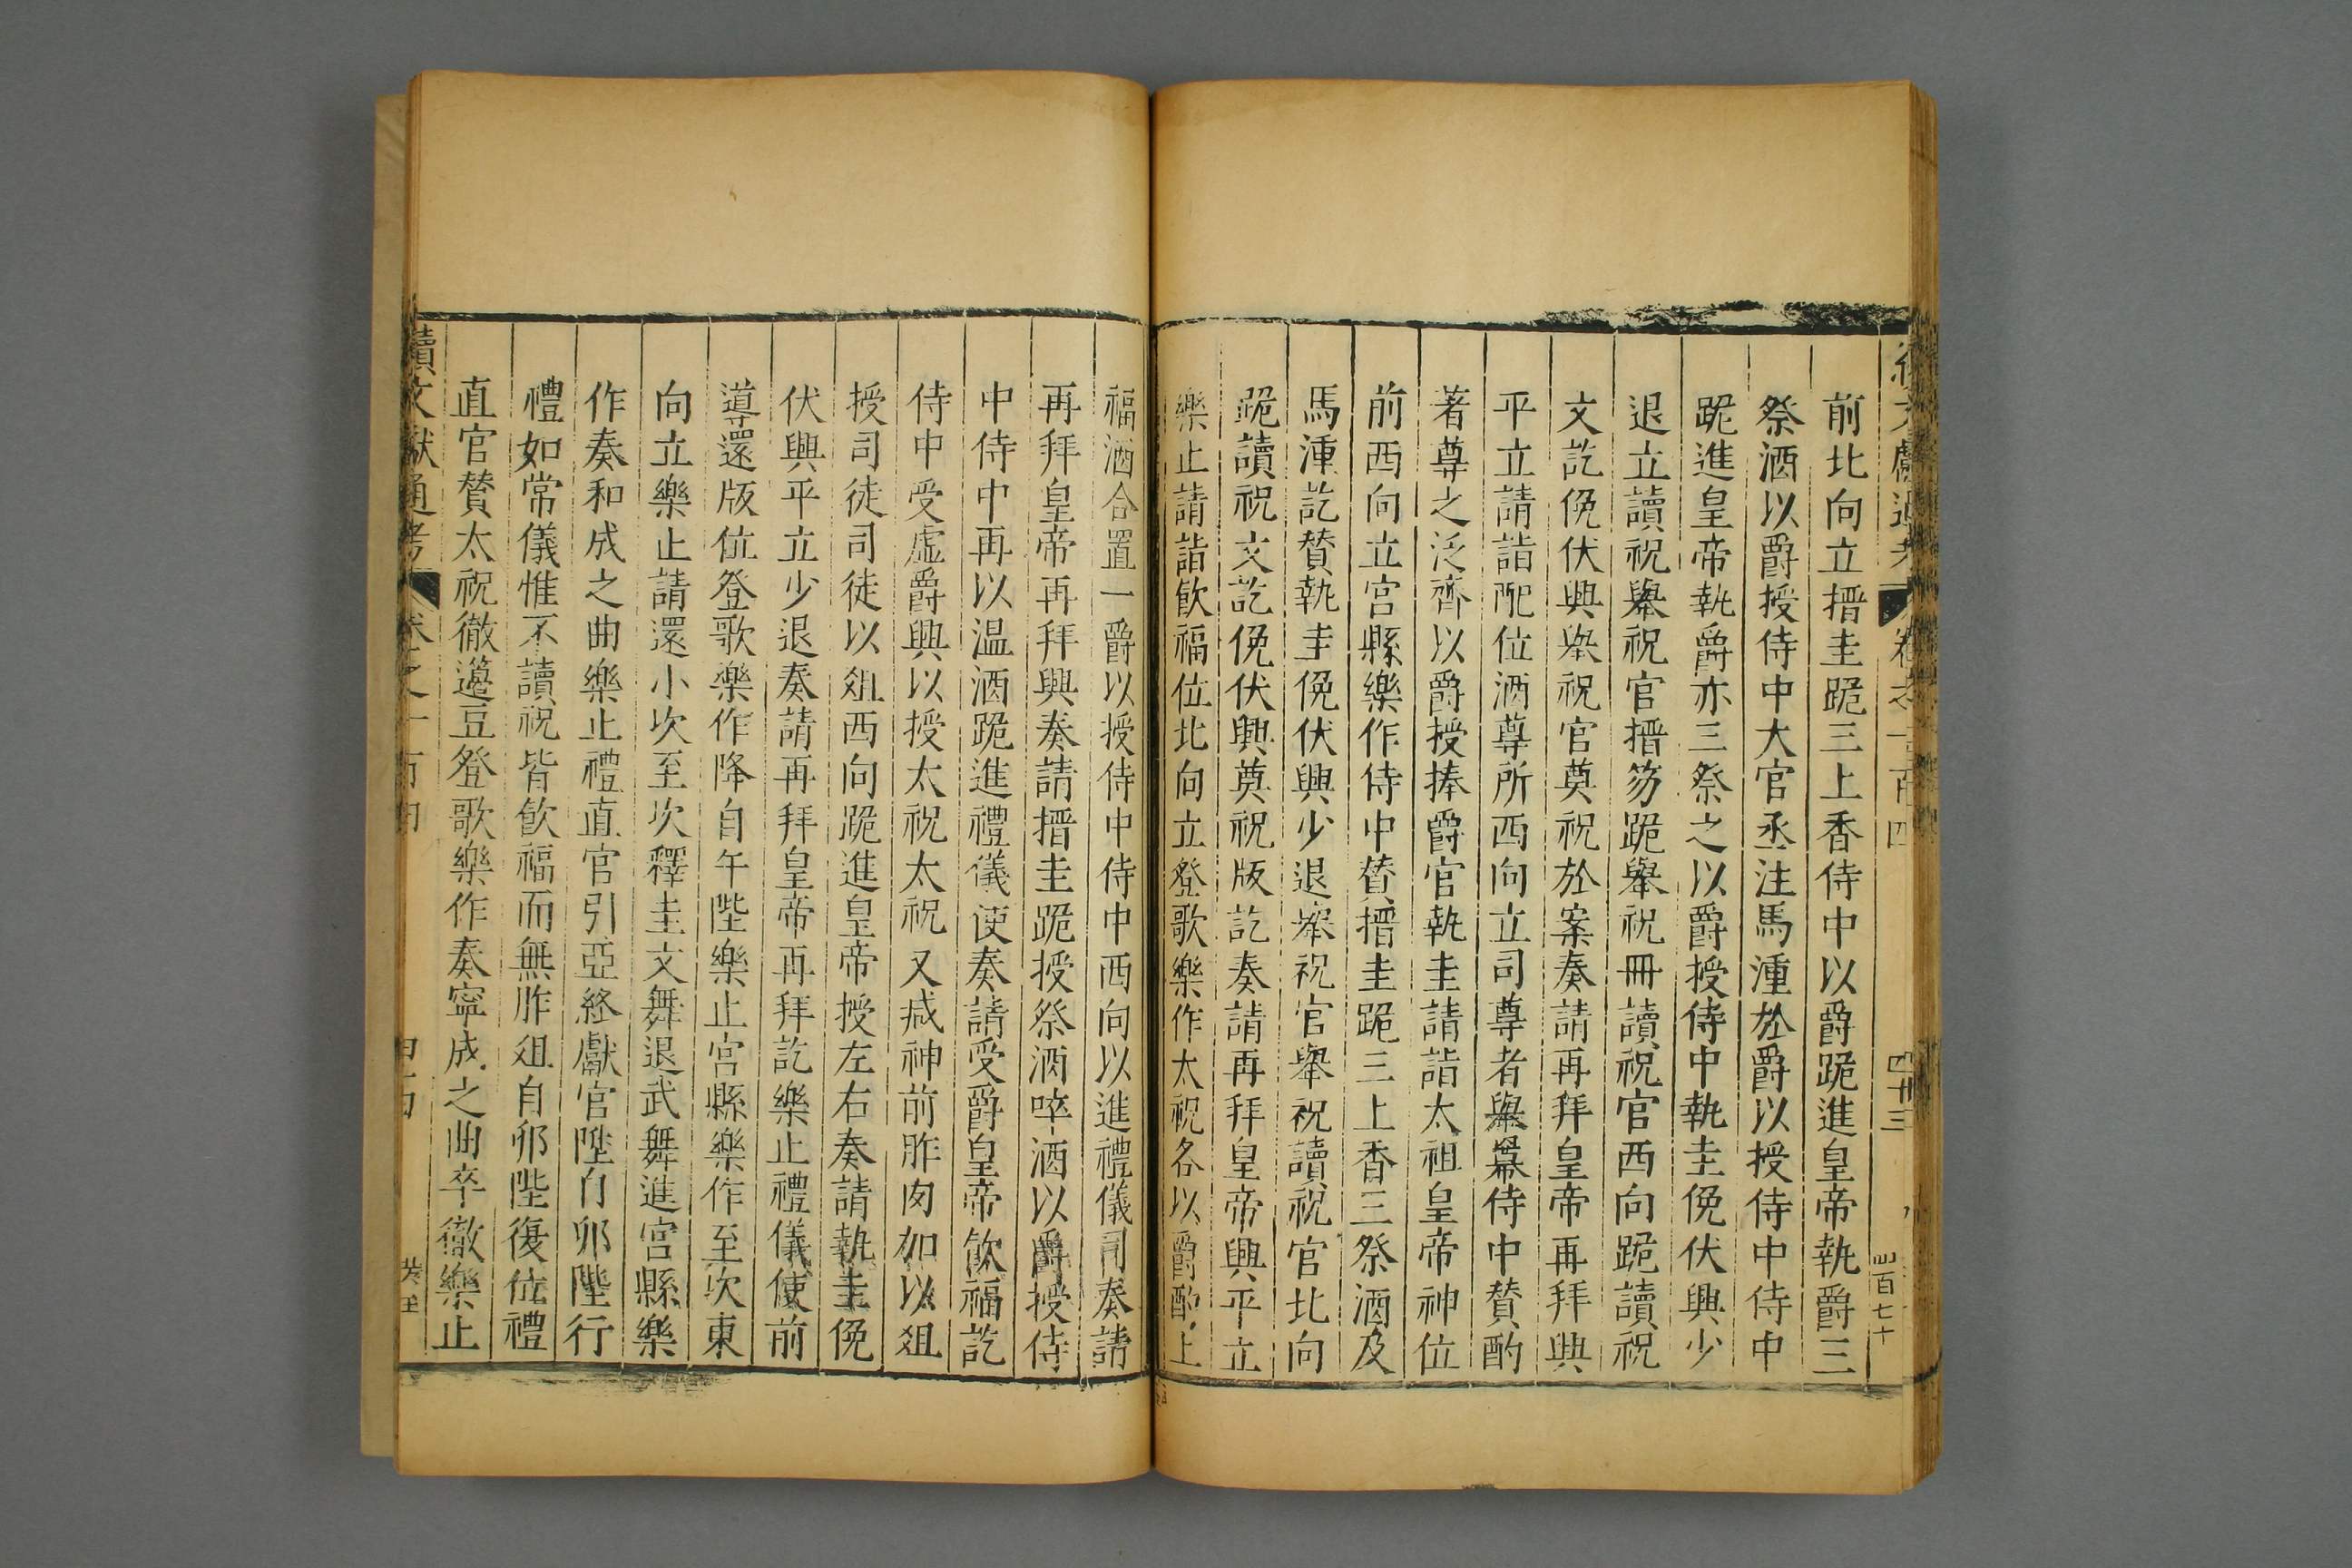 續文獻通考 卷之一百四 四十三 四百七十
前北向立搢圭跪三上香侍中以爵跪進皇帝執爵三
祭酒以爵授侍中大官丞注馬湩於爵以授侍中侍中
跪進皇帝執爵亦三祭之以爵授侍中執圭俛伏興少
退立讀祝舉祝官搢笏跪舉祝冊讀祝官西向跪讀祝
文訖俛伏興舉祝官奠祝於案奏請再拜皇帝再拜興
平立請詣配位酒尊所西向立司尊者舉冪侍中贊酌
著尊之泛齊以爵授捧爵官執圭請詣太祖皇帝神位
前西向立宮縣樂作侍中贊搢圭跪三上香三祭酒及
馬湩訖贊執圭俛伏興少退舉祝官舉祝讀祝官北向
跪讀祝文訖俛伏興奠祝版訖奏請再拜皇帝興平立
樂止請詣飲福位北向立登歌樂作太祝各以爵酌上
福酒合置一爵以授侍中侍中西向以進禮儀司奏請
再拜皇帝再拜興奏請搢圭跪授祭酒啐酒以爵授侍
中侍中再以温酒跪進禮儀使奏請受爵皇帝飲福訖
侍中受虛爵興以授太祝太祝又減神前胙肉加以俎
授司徒司徒以俎西向跪進皇帝授左右奏請執圭俛
伏興平立少退奏請再拜皇帝再拜訖樂止禮儀使前
導還版位登歌樂作降自午陛樂止宮縣樂作至坎東
向立樂止請還小次至次釋圭文舞退武舞進宮縣樂
作奏和成之曲樂止禮直官引亞終獻官陞自卯陛行
禮如常儀惟不讀祝皆飲福而無胙俎自卯陛復位禮
直官贊太祝徹籩豆登歌樂作奏寧成之曲卒徹樂止
續文獻通考 卷之一百四